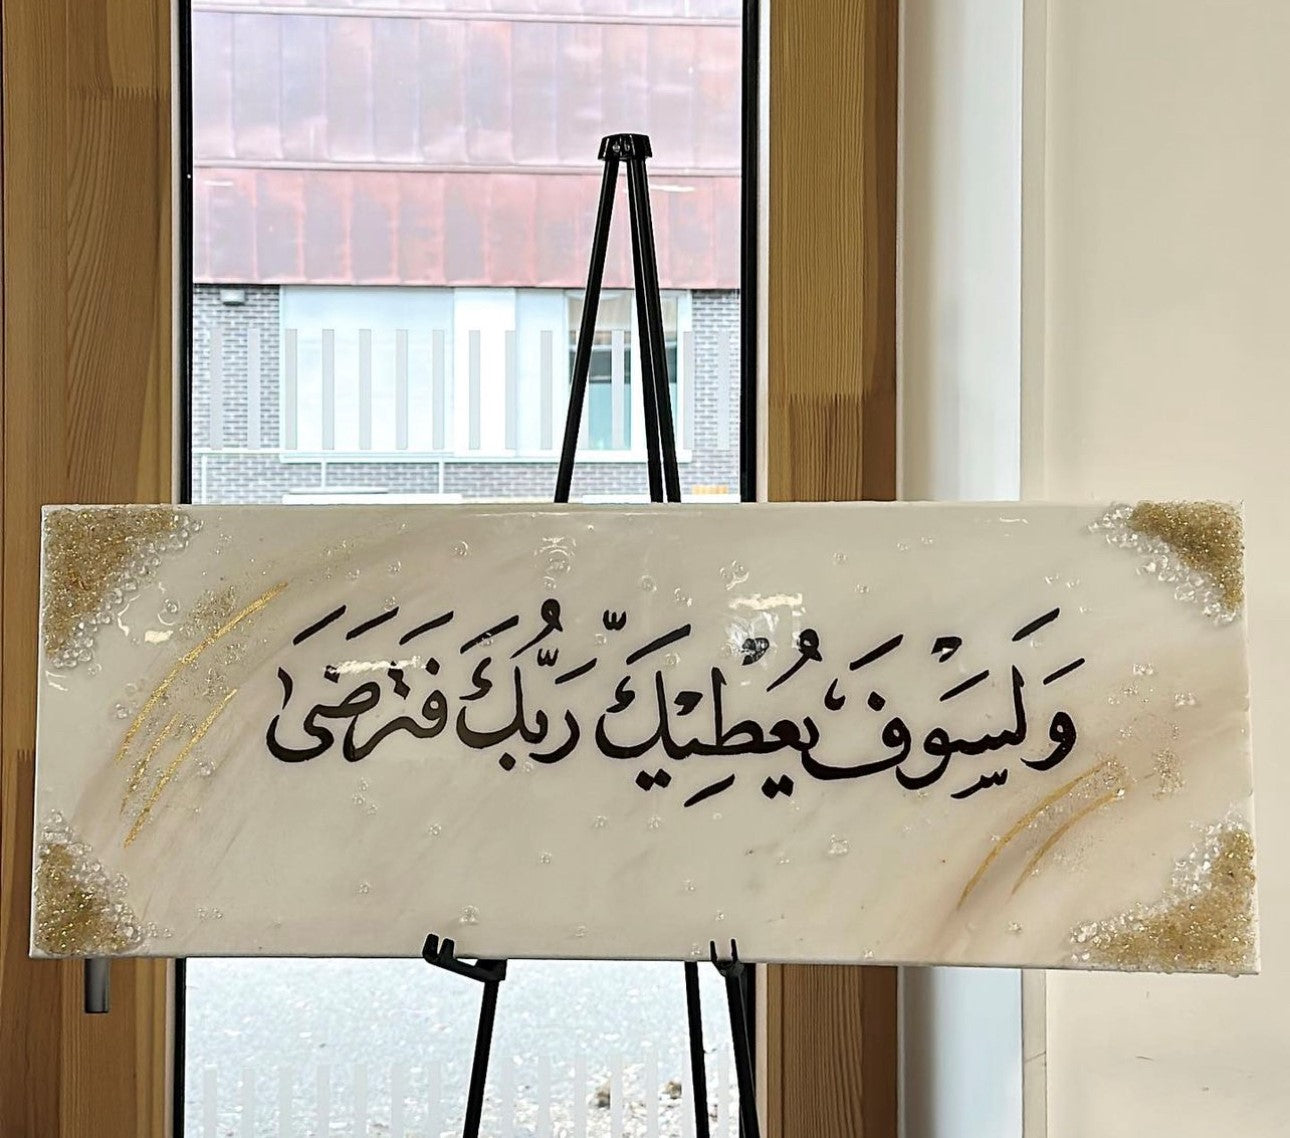 وَلَسَوْفَ يُعْطِيْكَ رَبُّكَ فَتَرَضَىٰ